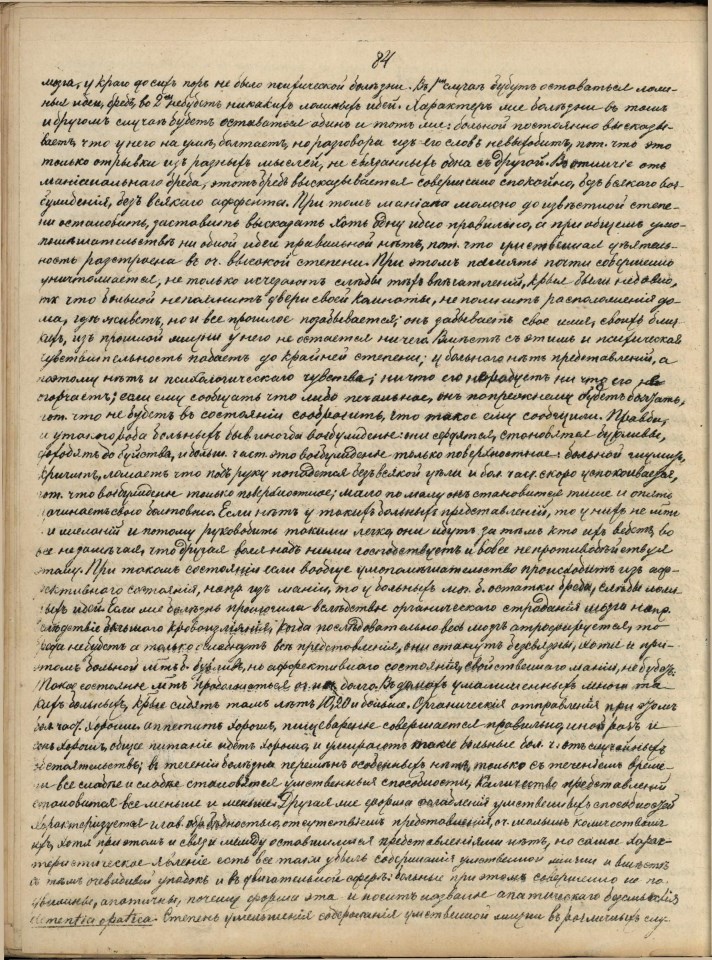 84
мозга, у краго до сихъ поръ не было психической болѣзни. Въ 1мъ случаѣ будутъ оставаться лож-
ныя идеи, бредъ, во 2мъ не будетъ никакихъ ложныхъ идей. Характеръ же болѣзни въ томъ
и другомъ случаѣ будетъ оставаться одинъ и тотъ же: больной постоянно высказы-
ваетъ, что у него на умѣ, болтаетъ, но разговора изъ его словъ не выходитъ, пот. что это
только отрывки изъ разныхъ мыслей, не связанныхъ одна съ другой. Въ отличіе отъ
маніакальнаго бреда, этотъ бредъ высказывается совершенно спокойно, безъ всякаго воз-
бужденія, безъ всякаго аффекта. При томъ маніака можно до извѣстной степе-
ни остановить, заставить высказать хоть одну идею правильно, а при общемъ умо-
помѣшательствѣ ни одной идеи правильной нѣтъ, пот. что умственная дѣятель-
ность разстроена въ оч. высокой степени. При этомъ память почти совершенно
уничтожается, не только исчезаютъ слѣды тѣхъ впечатлѣній, крыя были недавно,
тк что больной не помнитъ двери своей комнаты, не помнитъ расположенія до-
ма, гдѣ живетъ, но и все прошлое позабывается; онъ забываетъ свое имя, своихъ близ-
кихъ, изъ прошлой жизни у него не остается ничего. Вмѣстѣ съ этимъ и психическая
чувствительность падаетъ до крайней степени; у больного нѣтъ представленій, а
поэтому нѣтъ и психологическаго чувства; ничто его не радуетъ ни что его не
огорчаетъ; если ему сообщать что либо печальное, онъ попрежнему будетъ болтать,
пот. что не будетъ въ состояніи сообразить, что такое ему сообщили. Правда,
и у такого рода больныхъ быв. иногда возбужденіе: они сердятся, становятся бурливы,
доходятъ до буйства, и больш. част. это возбужденіе только поверхностное: больной шумитъ,
кричитъ, ломаетъ что подъ руку попадется безъ всякой цѣли и бол. част. скоро успокоивается,
пот. что возбужденіе только поверхностное; мало по малу онъ становится тише и опять
начинаетъ свою болтовню. Если нѣтъ у такихъ больныхъ представленій, то у нихъ не мож.
и желаній и потому руководить такими легко, они идутъ за тѣмъ кто ихъ ведетъ, во
все не замѣчая, что другая воля надъ ними господствуетъ и вовсе не противодѣйствуя
этому. При такомъ состояніи если вообще умопомѣшательство происходитъ изъ аф-
фективнаго состоянія, напр. изъ маніи, то у больныхъ мог. б. остатки бреда, слѣды лож-
ныхъ идей. Если же болѣзнь произошла вслѣдствіе органическаго страданія мозга напр.
вслѣдствіе бывшаго кровоизліянія, когда послѣдовательно весь мозгъ атрофируется, то
бреда не будетъ а только ослабнутъ всѣ представленія, они станутъ безсвязны, хотя и при
томъ больной мтъ б. бурливъ, но аффективнаго состоянія, свойственнаго маніи, не будетъ.
Такое состояніе мтъ продолжаться оч. долго. Въ домахъ умалишенныхъ много та-
кихъ больныхъ, крые сидятъ тамъ лѣтъ 10, 20 и больше. Органическія отправленія при этомъ
бол. част. хороши: аппетитъ хорошъ, пищевареніе совершается правильно, иной разъ и
сонъ хорошъ, общее питаніе идетъ хорошо, и умираютъ такіе больные бол. ч. отъ случайныхъ
обстоятельствъ; въ теченіи болѣзни перемѣнъ особенныхъ нѣтъ, только съ теченіемъ време-
ни все слабѣе и слабѣе становятся умственныя способности, количество представленій
становится все меньше и меньше. Другая же форма ослабленія умственныхъ способностей
характеризуется глав. обр. бѣдностью, отсутствіемъ представленій, оч. малымъ количествомъ
ихъ, хотя при этомъ и связи между оставшимися представленіями нѣтъ, но самое харак-
теристическое явленіе есть все таки убыль содержанія умственной жизни и вмѣстѣ
съ тѣмъ очевидный упадокъ и въ двигательной сферѣ: больные при этомъ совершенно не по-
движны, апатичны, почему форма эта и носитъ названіе апатическаго безсмыслія
dementia apatica. Степень уменьшенія содержанія умственной жизни въ различныхъ слу-